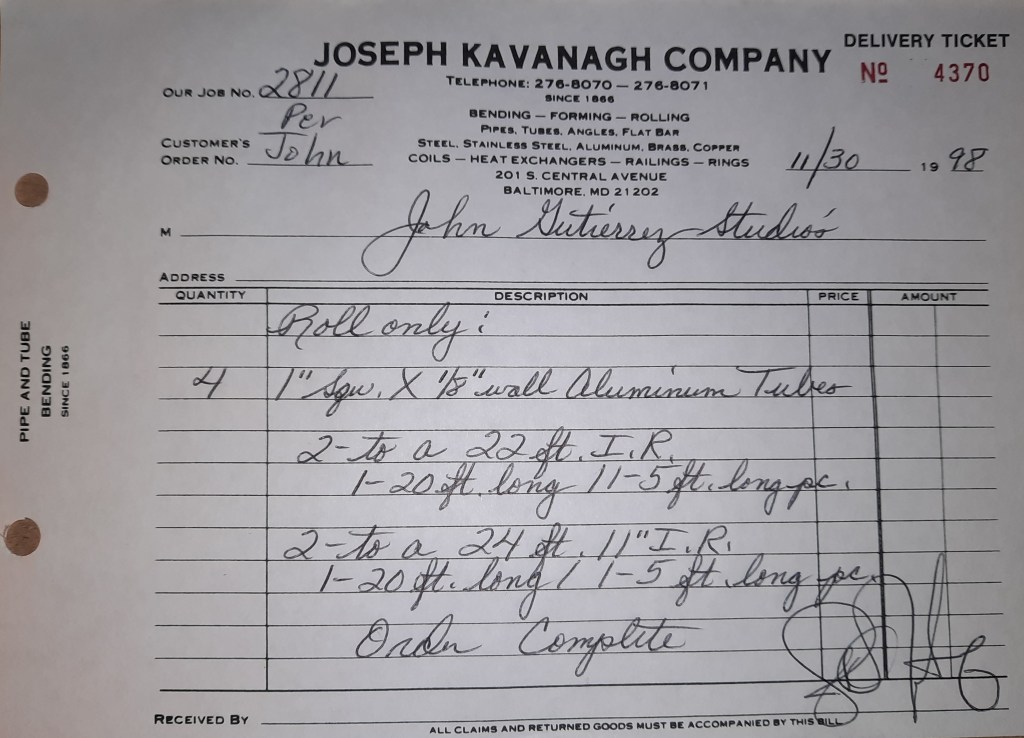 JOSEPH KAVANAGH COMPANY
DELIVERY TICKET
Nº 4370
TELEPHONE: 276-8070 — 276-8071
SINCE 1866
OUR JOB NO. 2811
BENDING — FORMING — ROLLING
PIPES, TUBES, ANGLES, FLAT BAR
STEEL, STAINLESS STEEL, ALUMINUM, BRASS, COPPER
COILS — HEAT EXCHANGERS — RAILINGS — RINGS
201 S. CENTRAL AVENUE
BALTIMORE, MD 21202
Per
CUSTOMER'S
ORDER NO. John
11/30 19 98
M John Gutiérrez Studio's
ADDRESS
QUANTITY DESCRIPTION PRICE AMOUNT
Roll only:
4 1" Squ. X 1/8" wall Aluminum Tubes
2-to a 22 ft. I.R.
1-20 ft. long / 1-5 ft. long pc.
2-to a 24 ft. 11" I.R.
1-20 ft. long / 1-5 ft. long pc.
Order Complete
RECEIVED BY
ALL CLAIMS AND RETURNED GOODS MUST BE ACCOMPANIED BY THIS BILL
PIPE AND TUBE
BENDING
SINCE 1866